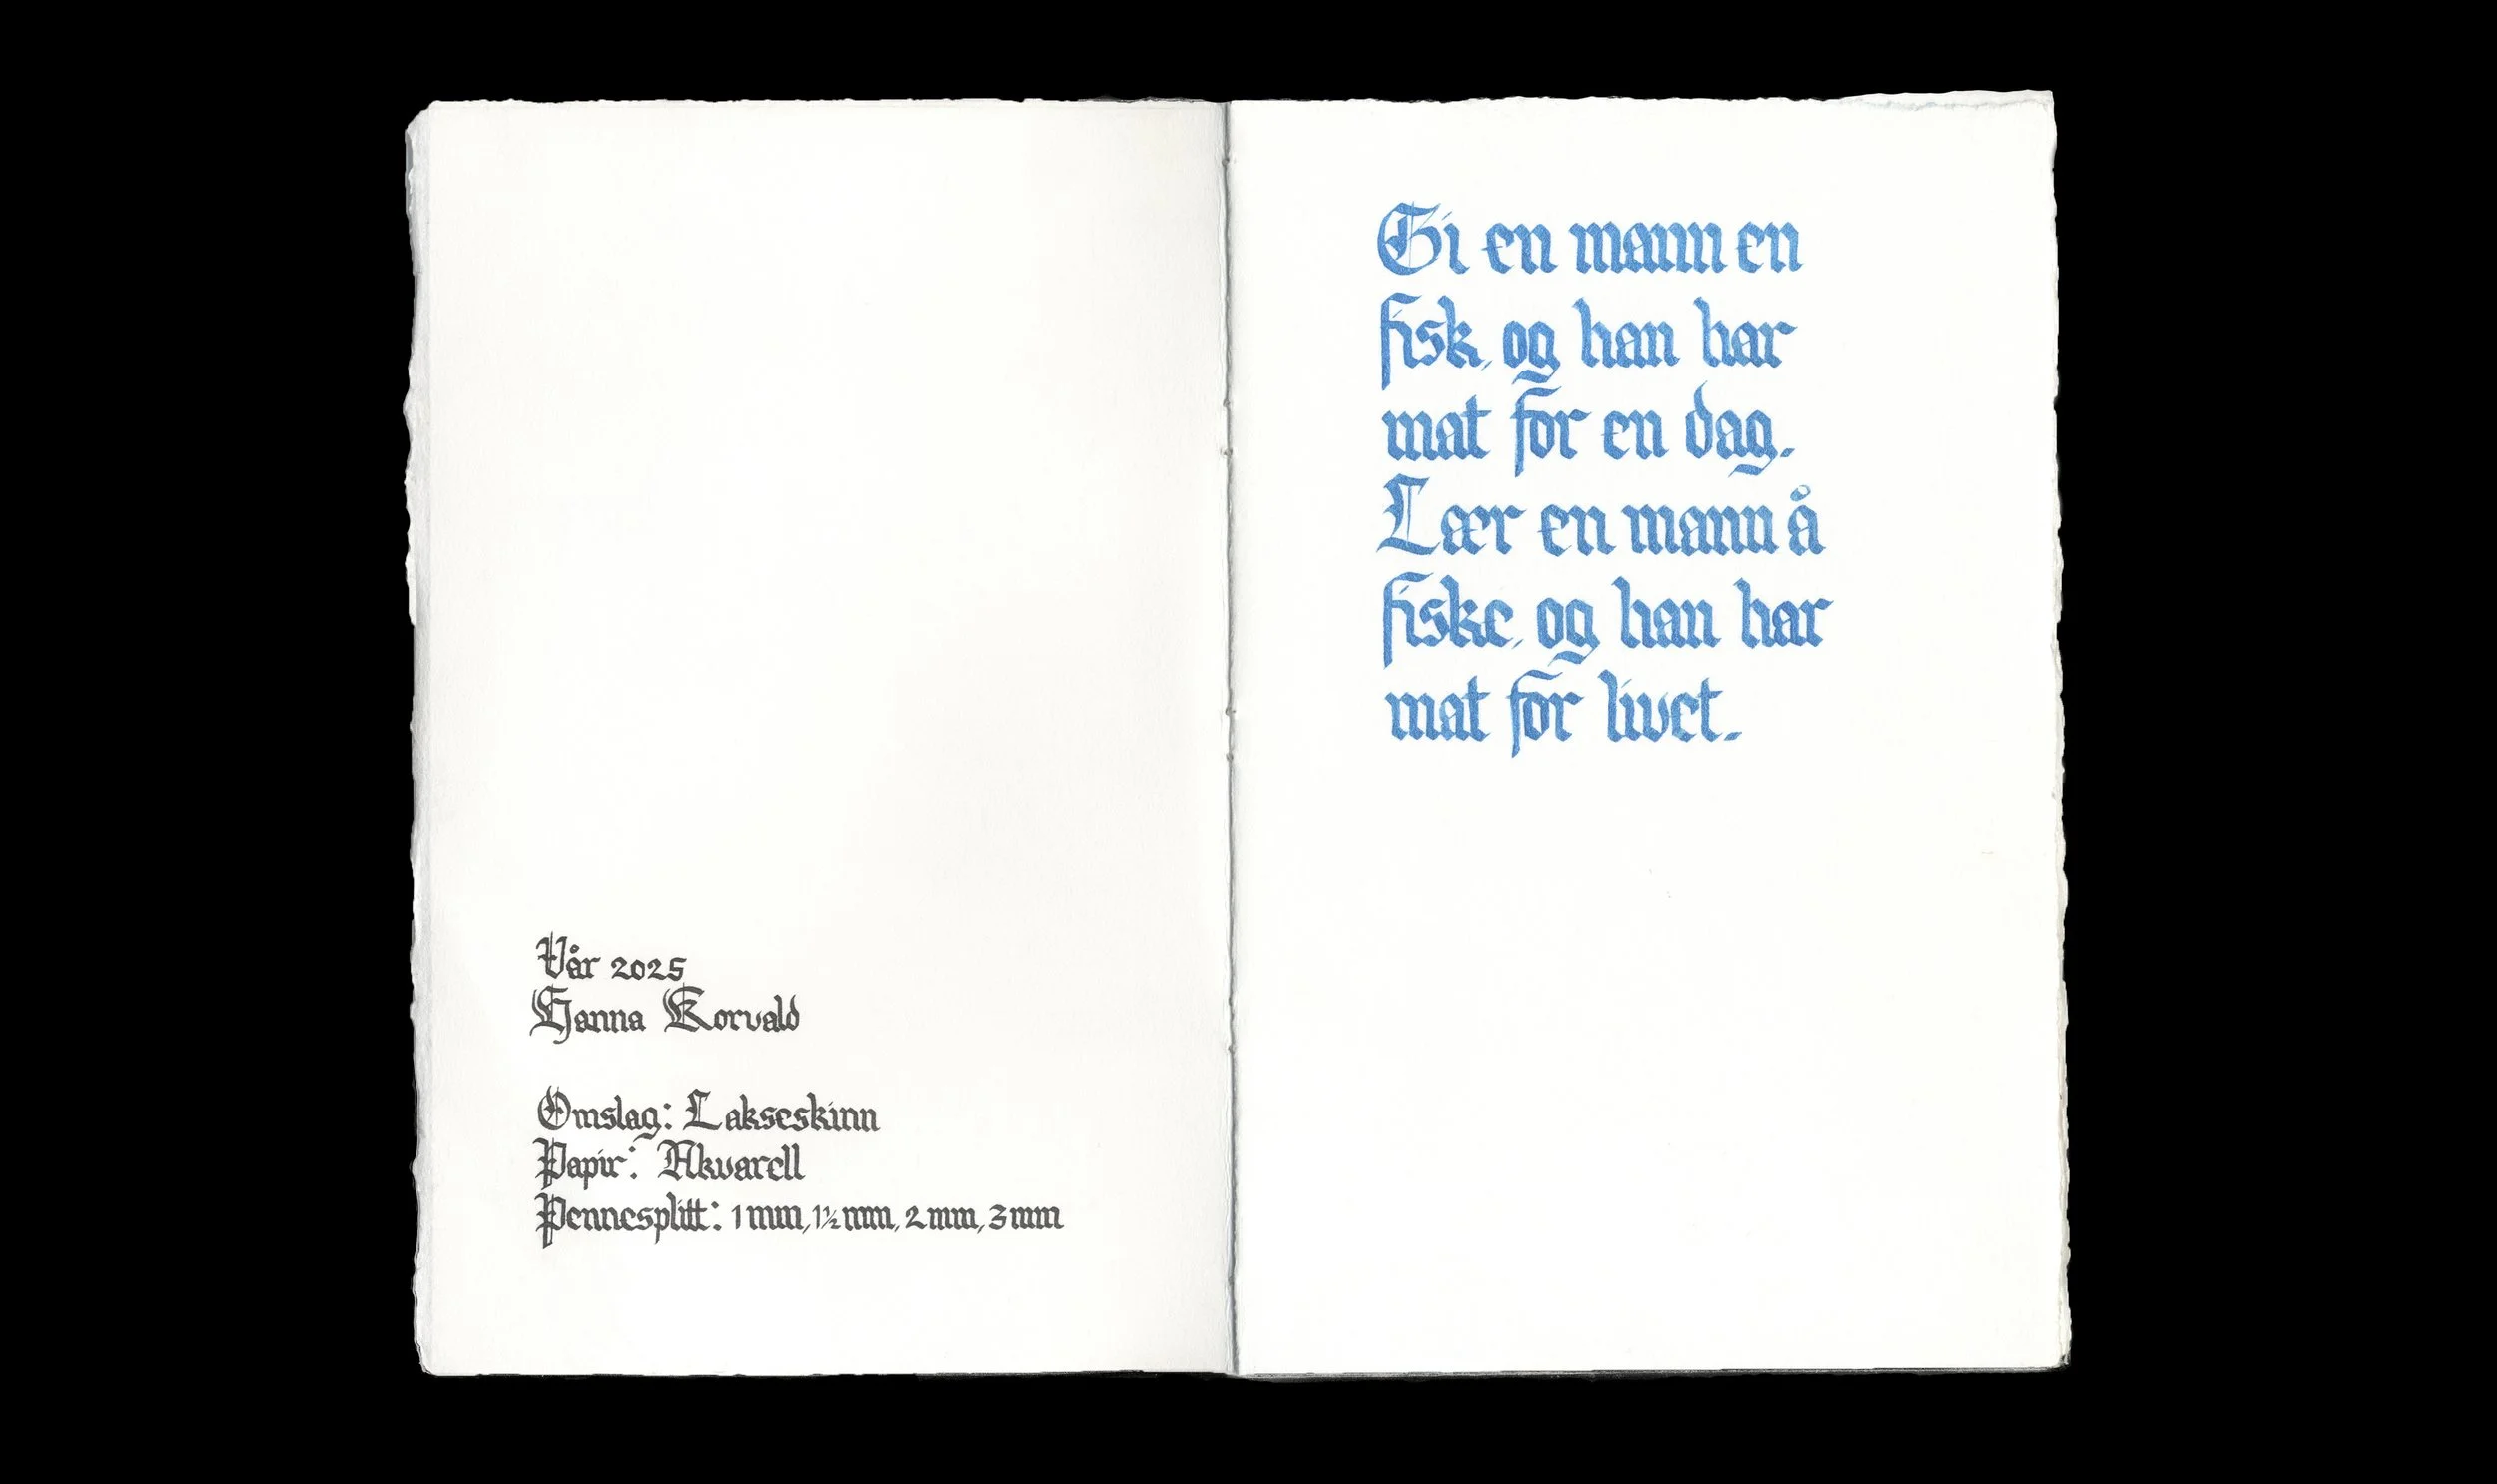 Vår 2025
Hanna Korvald
Omslag: Lakseskinn
Papir: Akvarell
Pennesplitt: 1 mm, 1½ mm, 2 mm, 3 mm
Gi en mann en
fisk, og han har
mat for en dag.
Lær en mann å
fiske, og han har
mat for livet.